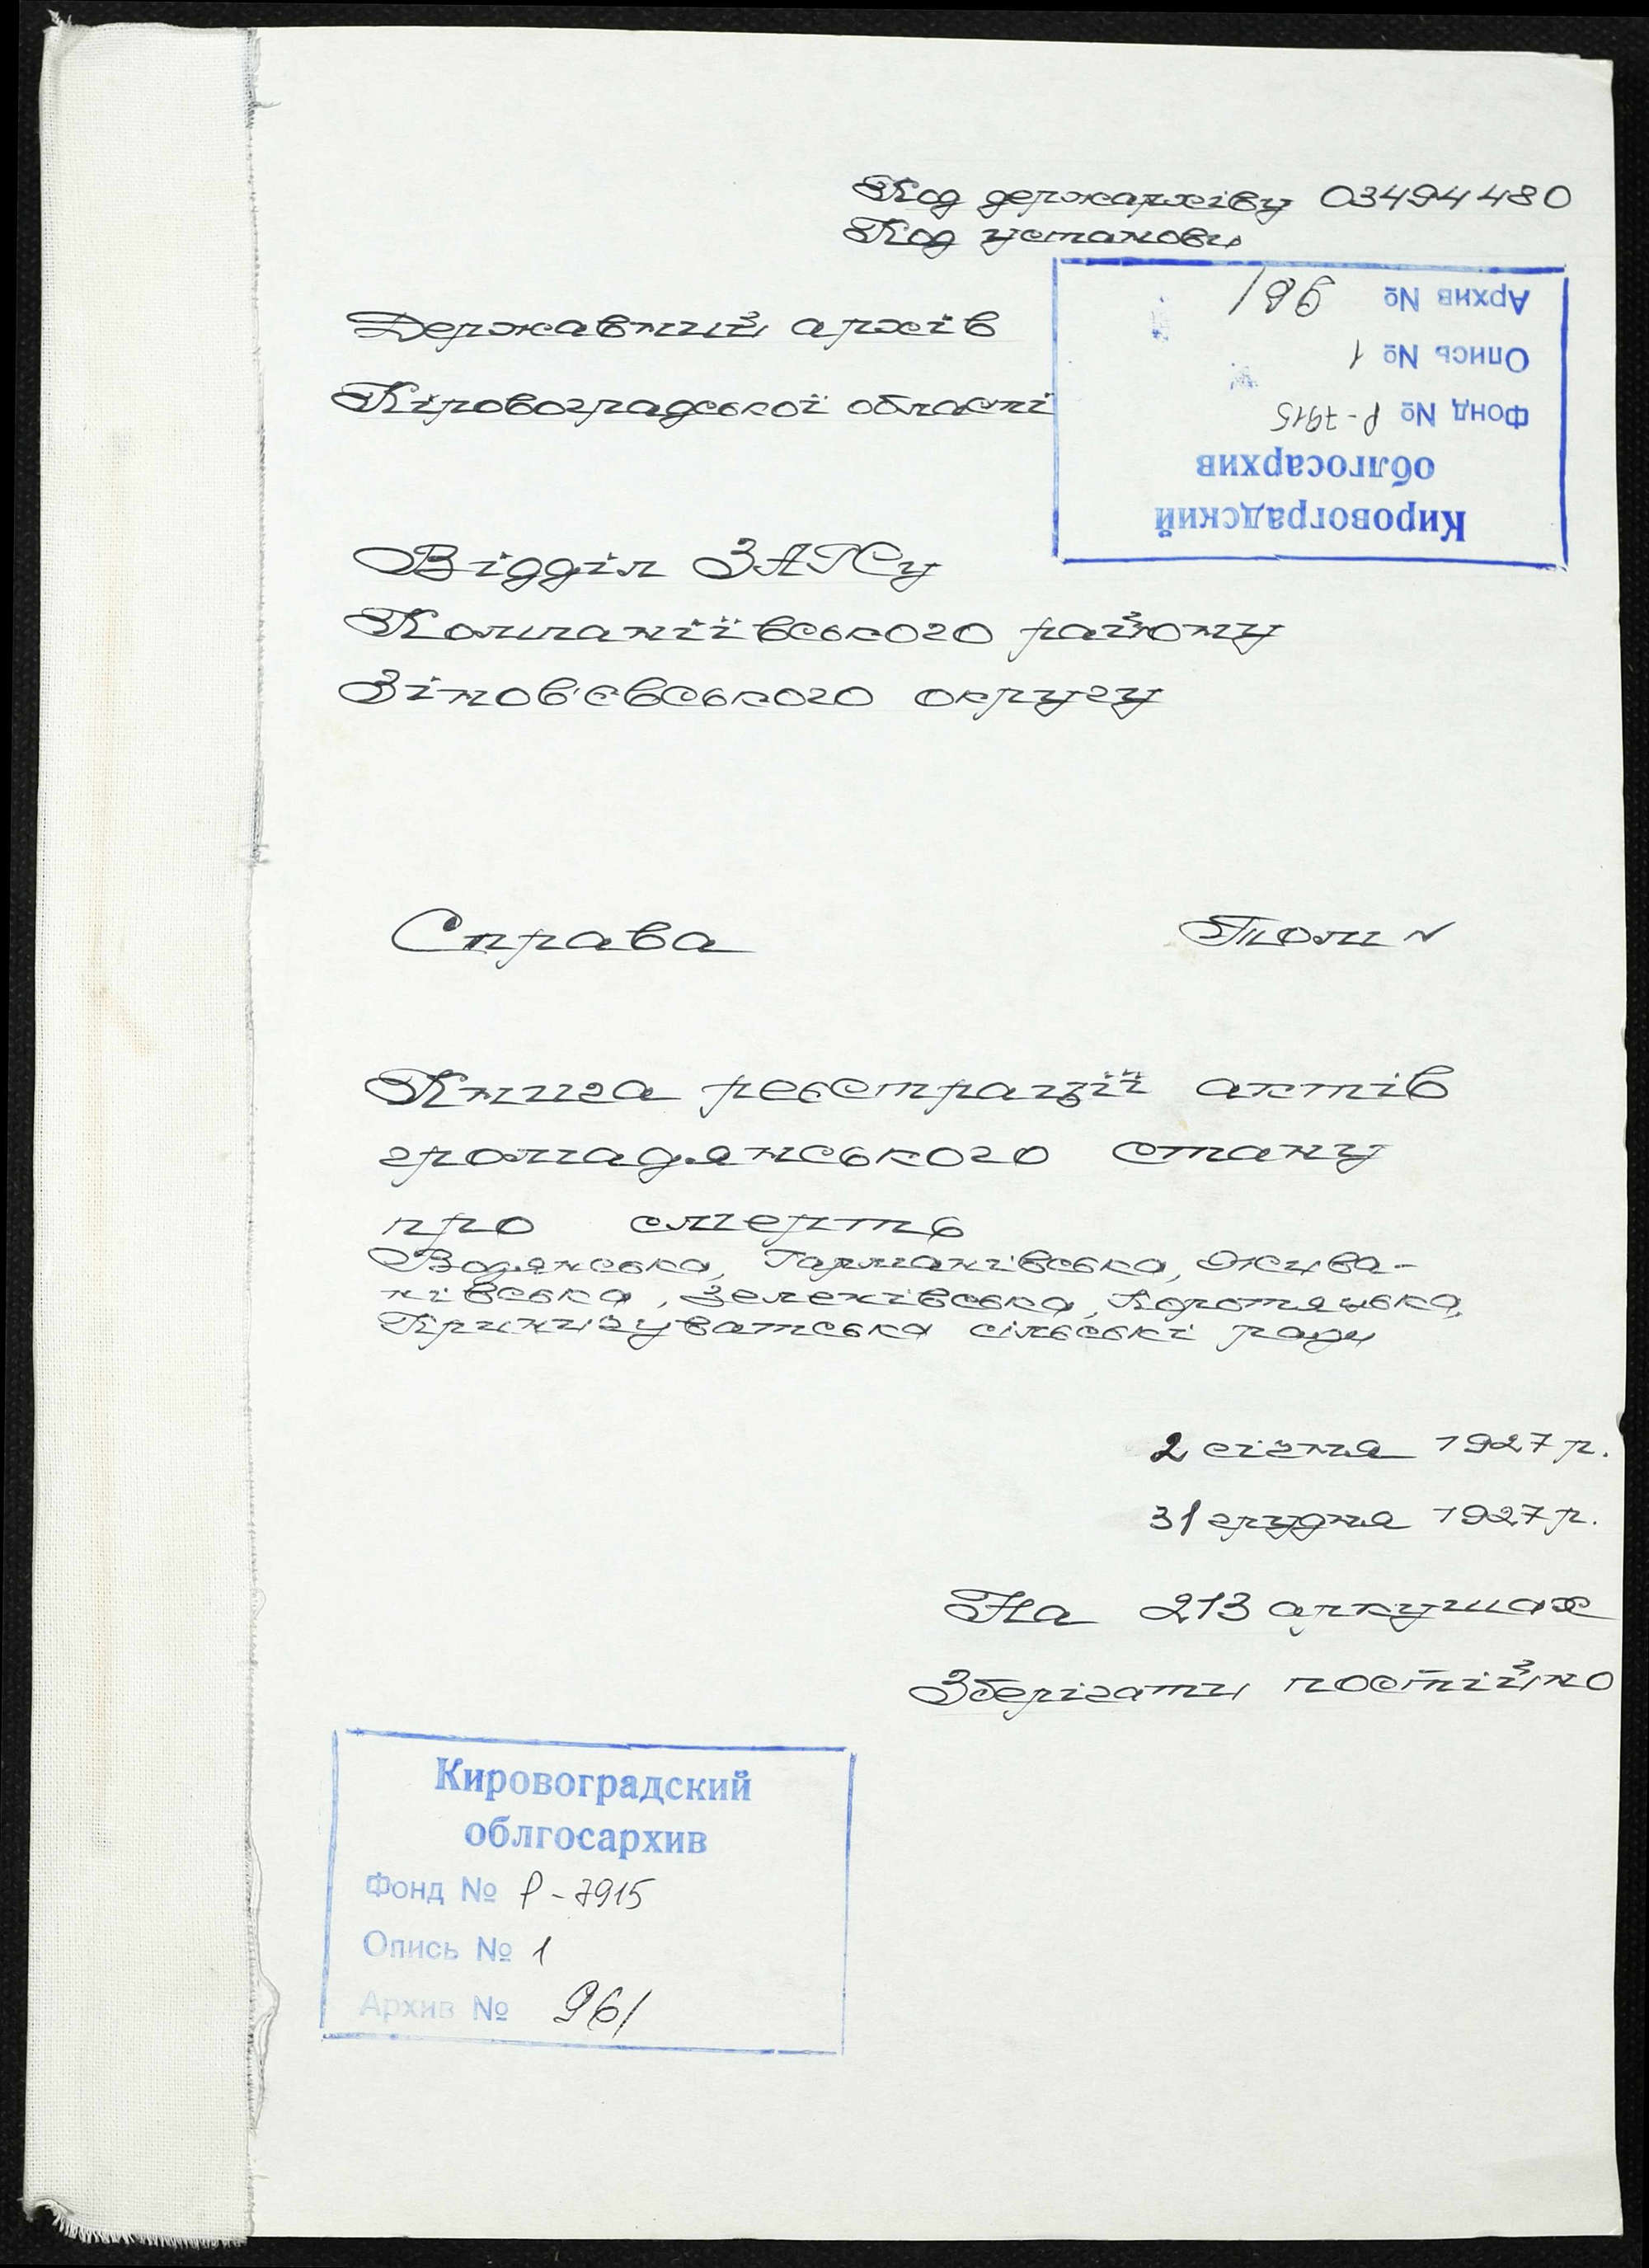 Код держархіву 03494480
Код установи
Кировоградский
облгосархив
Фонд № Р-7915
Опись № 1
Архив № 961
Державний архів
Кіровоградської області
Відділ ЗАГСу
Компаніївського району
Зінов'євського округу
Справа Том №
Книга реєстрації актів
громадянського стану
про смерть
Водянська, Гарманівська, Жива-
нівська, Зеленівська, Коротяцька,
Криничуватська сільські ради
2 січня 1927 р.
31 грудня 1927 р.
На 213 аркушах
Зберігати постійно
Кировоградский
облгосархив
Фонд № Р-7915
Опись № 1
Архив № 961